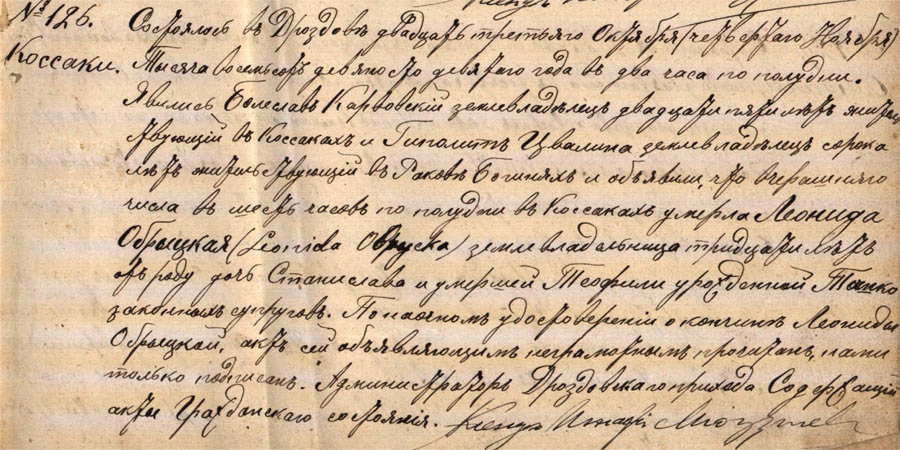 № 126. Состоялось въ Дроздовѣ двадцать третьяго Октября (четвертаго Ноября)
Коссаки. Тысяча восемьсотъ девяносто девятаго года въ два часа по полудни.
Явились Болеславъ Карвовскій землевладѣлецъ двадцати пяти лѣтъ житель
ствующій въ Коссакахъ и Гиполитъ Цвалина землевладѣлецъ сорока
лѣтъ жительствующій въ Раковѣ Богиняхъ и объявили, что вчерашняго
числа въ шесть часовъ по полудни въ Коссакахъ умерла Леонида
Обрыцкая (Leonida Obrycka) землевладельница тридцати лѣтъ
отъ роду дочь Станислава и умершей Теофили урожденной
законныхъ супруговъ. По наочномъ удостовереніи о кончинѣ Леониды
Обрыцкой, актъ сей объявляющимъ неграмотнымъ прочитанъ, нами
только подписанъ. Администраторъ Дроздовскаго прихода Содержащій
акты Гражданскаго состоянія. Ксендзъ